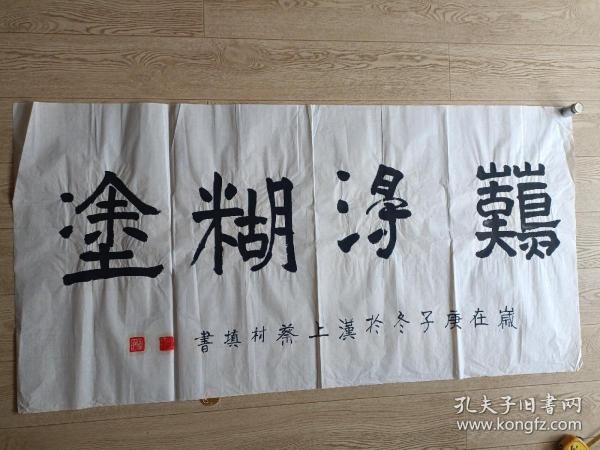 難得糊塗
嵗在庚子冬於漢上蔡村填書
孔夫子旧書网
www.kongfz.com